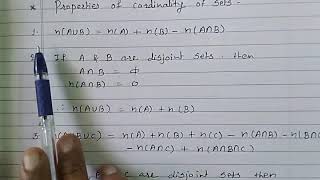 * Properties of cardinality of sets -
1. n(A∪B) = n(A) + n(B) - n(A∩B)
If A & B are disjoint sets, then
A∩B = ϕ
n(A∩B) = 0
∴ n(A∪B) = n(A) + n(B)
3. n(A∪B∪C) = n(A) + n(B) + n(C) - n(A∩B) - n(B∩
- n(A∩C) + n(A∩B∩C)
B c are disjoint sets then